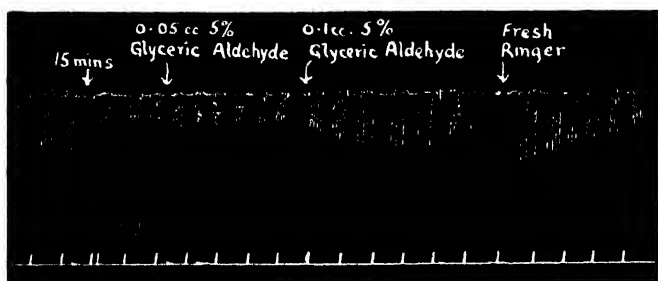 15 mins
0.05 cc 5%
Glyceric Aldehyde
0.1cc. 5%
Glyceric Aldehyde
Fresh
Ringer